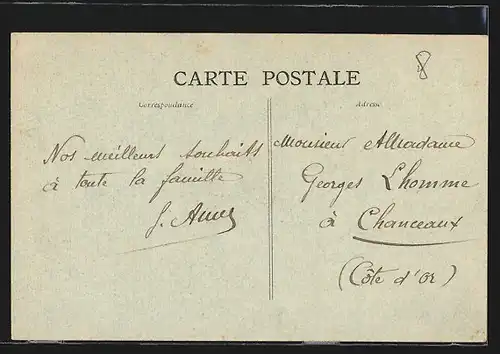 CARTE POSTALE
Correspondance
Adresse
Nos meilleurs souhaits
à toute la famille
Monsieur et Madame
Georges Lhomme
à Chanceaux
(Côte d'Or)